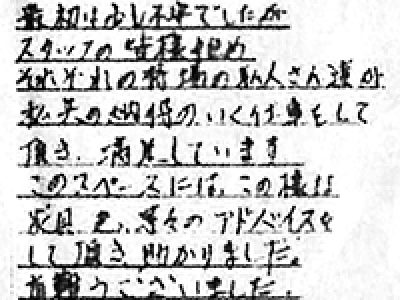 最初は少し不安でしたが
スタッフの皆様始め
それぞれの持場の職人さん達が
私共の納得のいく仕事をして
頂き、満足しています
このスペースには、この様な
家具を、等々のアドバイスを
して頂き助かりました。
有難うございました。